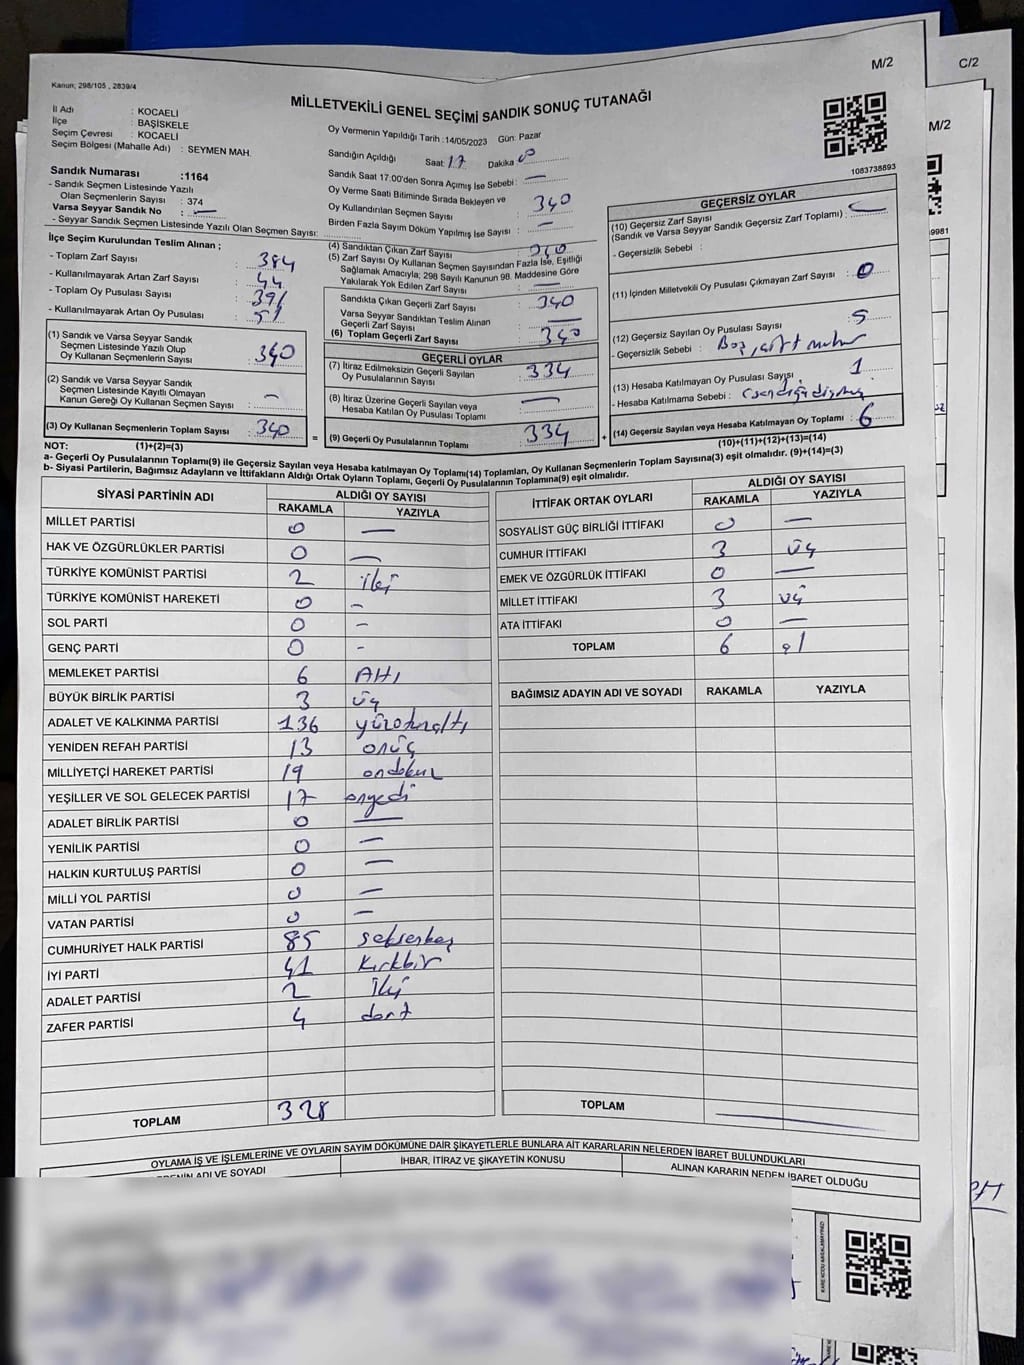 M/2
C/2
M/2
Kanun; 298/105 , 2839/4
MİLLETVEKİLİ GENEL SEÇİMİ SANDIK SONUÇ TUTANAĞI
İl Adı : KOCAELİ
İlçe : BAŞİSKELE
Seçim Çevresi : KOCAELİ
Seçim Bölgesi (Mahalle Adı) : SEYMEN MAH.
Sandık Numarası :1164
- Sandık Seçmen Listesinde Yazılı
Olan Seçmenlerin Sayısı : 374
Varsa Seyyar Sandık No : —
- Seyyar Sandık Seçmen Listesinde Yazılı Olan Seçmen Sayısı:
Oy Vermenin Yapıldığı Tarih :14/05/2023 Gün: Pazar
Sandığın Açıldığı Saat: 17 Dakika
Sandık Saat 17:00'den Sonra Açımış İse Sebebi : —
Oy Verme Saati Bitiminde Sırada Bekleyen ve
Oy Kullandırılan Seçmen Sayısı : 340
Birden Fazla Sayım Döküm Yapılmış İse Sayısı : —
1083738893
9981
İlçe Seçim Kurulundan Teslim Alınan ;
- Toplam Zarf Sayısı : 384
- Kullanılmayarak Artan Zarf Sayısı : 44
- Toplam Oy Pusulası Sayısı : 391
- Kullanılmayarak Artan Oy Pusulası : 51
(1) Sandık ve Varsa Seyyar
Sandık Seçmen Listesinde Yazılı Olup
Oy Kullanan Seçmenlerin Sayısı : 340
(2) Sandık ve Varsa Seyyar Sandık
Seçmen Listesinde Kayıtlı Olmayan
Kanun Gereği Oy Kullanan Seçmen Sayısı : —
(3) Oy Kullanan Seçmenlerin Toplam Sayısı : 340
(4) Sandıktan Çıkan Zarf Sayısı : 340
(5) Zarf Sayısı Oy Kullanan Seçmen Sayısından Fazla İse, Eşitliği
Sağlamak Amacıyla; 298 Sayılı Kanunun 98. Maddesine Göre
Yakılarak Yok Edilen Zarf Sayısı : —
Sandıkta Çıkan Geçerli Zarf Sayısı : 340
Varsa Seyyar Sandıktan Teslim Alınan
Geçerli Zarf Sayısı : —
(6) Toplam Geçerli Zarf Sayısı : 340
GEÇERLİ OYLAR
(7) İtiraz Edilmeksizin Geçerli Sayılan
Oy Pusulalarının Sayısı : 334
(8) İtiraz Üzerine Geçerli Sayılan veya
Hesaba Katılan Oy Pusulası Toplamı : —
= (9) Geçerli Oy Pusulalarının Toplamı : 334 +
GEÇERSİZ OYLAR
(10) Geçersiz Zarf Sayısı
(Sandık ve Varsa Seyyar Sandık Geçersiz Zarf Toplamı) :
- Geçersizlik Sebebi :
(11) İçinden Milletvekili Oy Pusulası Çıkmayan Zarf Sayısı : 0
(12) Geçersiz Sayılan Oy Pusulası Sayısı : 5
- Geçersizlik Sebebi : Boş, çift mühür
(13) Hesaba Katılmayan Oy Pusulası Sayısı : 1
- Hesaba Katılmama Sebebi :
(14) Geçersiz Sayılan veya Hesaba Katılmayan Oy Toplamı : 6
NOT: (1)+(2)=(3) (10)+(11)+(12)+(13)=(14)
a- Geçerli Oy Pusulalarının Toplamı(9) ile Geçersiz Sayılan veya Hesaba katılmayan Oy Toplamı(14) Toplamları, Oy Kullanan Seçmenlerin Toplam Sayısına(3) eşit olmalıdır. (9)+(14)=(3)
b- Siyasi Partilerin, Bağımsız Adayların ve İttifakların Aldığı Ortak Oyların Toplamı, Geçerli Oy Pusulalarının Toplamına(9) eşit olmalıdır.
SİYASİ PARTİNİN ADI ALDIĞI OY SAYISI
RAKAMLA YAZIYLA
MİLLET PARTİSİ 0 —
HAK VE ÖZGÜRLÜKLER PARTİSİ 0 —
TÜRKİYE KOMÜNİST PARTİSİ 2 iki
TÜRKİYE KOMÜNİST HAREKETİ 0 -
SOL PARTİ 0 -
GENÇ PARTİ 0 -
MEMLEKET PARTİSİ 6 AHı
BÜYÜK BİRLİK PARTİSİ 3 üç
ADALET VE KALKINMA PARTİSİ 136 yüzotuzaltı
YENİDEN REFAH PARTİSİ 13 onüç
MİLLİYETÇİ HAREKET PARTİSİ 19 ondokuz
YEŞİLLER VE SOL GELECEK PARTİSİ 17 onyedi
ADALET BİRLİK PARTİSİ 0 —
YENİLİK PARTİSİ 0 —
HALKIN KURTULUŞ PARTİSİ 0 —
MİLLİ YOL PARTİSİ 0 —
VATAN PARTİSİ 0 —
CUMHURİYET HALK PARTİSİ 85 seksenbeş
İYİ PARTİ 41 kırkbir
ADALET PARTİSİ 2 iki
ZAFER PARTİSİ 4 dört
TOPLAM 328
İTTİFAK ORTAK OYLARI ALDIĞI OY SAYISI
RAKAMLA YAZIYLA
SOSYALİST GÜÇ BİRLİĞİ İTTİFAKI 0 —
CUMHUR İTTİFAKI 3 üç
EMEK VE ÖZGÜRLÜK İTTİFAKI 0 —
MİLLET İTTİFAKI 3 üç
ATA İTTİFAKI 0 —
TOPLAM 6
BAĞIMSIZ ADAYIN ADI VE SOYADI RAKAMLA YAZIYLA
TOPLAM —
OYLAMA İŞ VE İŞLEMLERİNE VE OYLARIN SAYIM DÖKÜMÜNE DAİR ŞİKAYETLERLE BUNLARA AİT KARARLARIN NELERDEN İBARET BULUNDUKLARI
ADI VE SOYADI İHBAR, İTİRAZ VE ŞİKAYETİN KONUSU ALINAN KARARIN NEDEN İBARET OLDUĞU